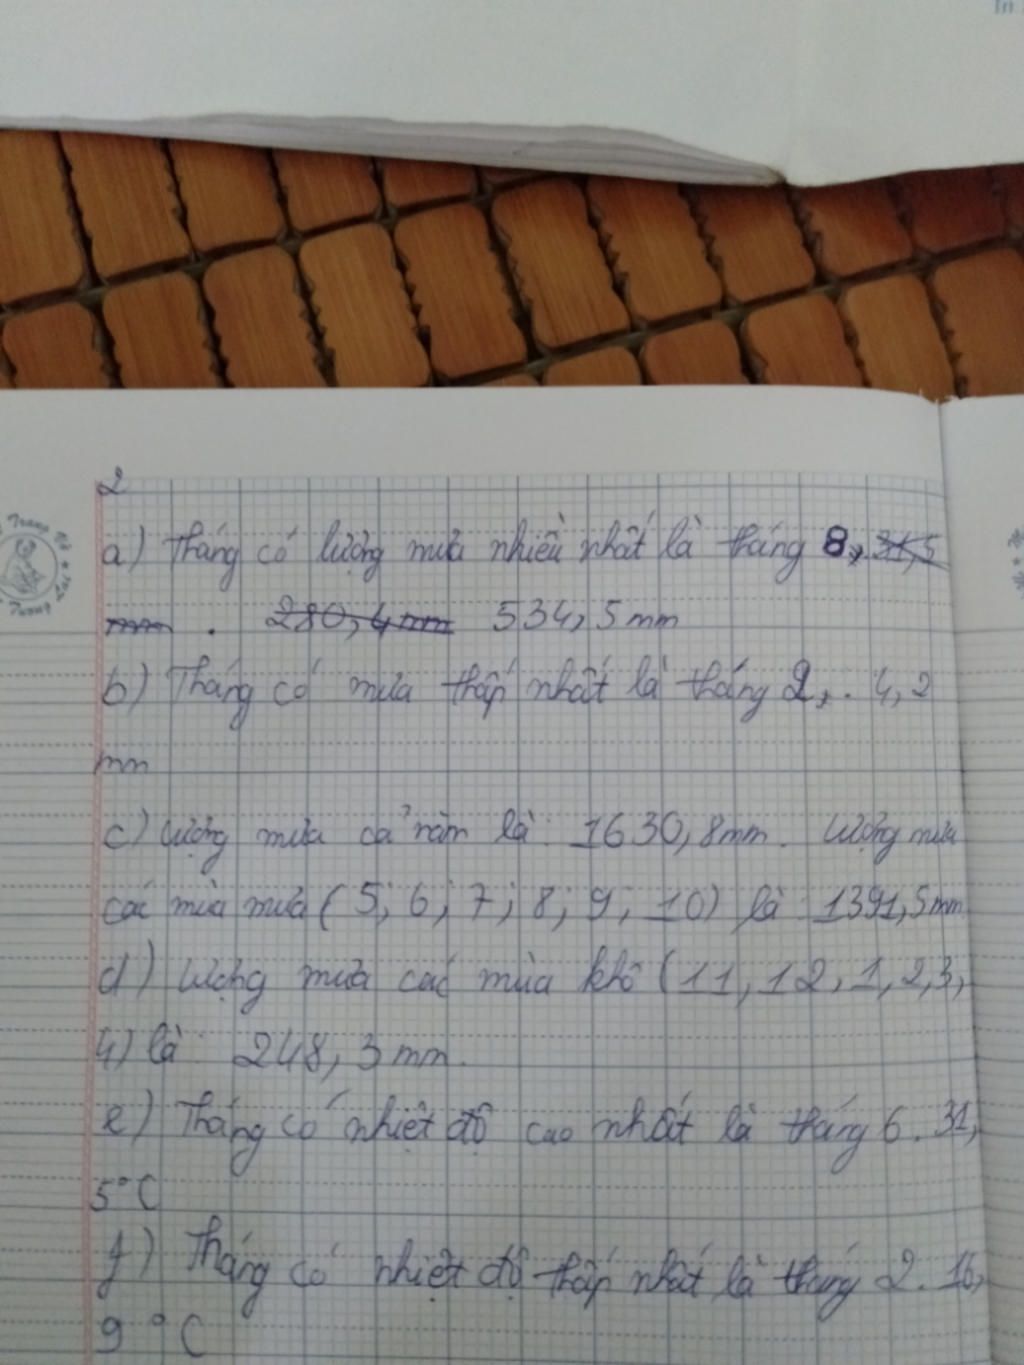 In
2
a) Tháng có lượng mưa nhiều nhất là tháng 8, 31,5
mm . 280,4mm 534,5mm
b) Tháng có mưa thấp nhất là tháng 2,. 4,2
mm
c) Lượng mưa cả năm là: 1630,8mm. Lượng mưa
các mùa mưa (5; 6; 7; 8; 9; 10) là: 1391,5mm
d) Lượng mưa các mùa khô (11, 12, 1, 2, 3,
4) là: 248,3mm.
e) Tháng có nhiệt độ cao nhất là tháng 6. 31,
5°C
f) Tháng có nhiệt độ thấp nhất là tháng 2. 16,
9°C